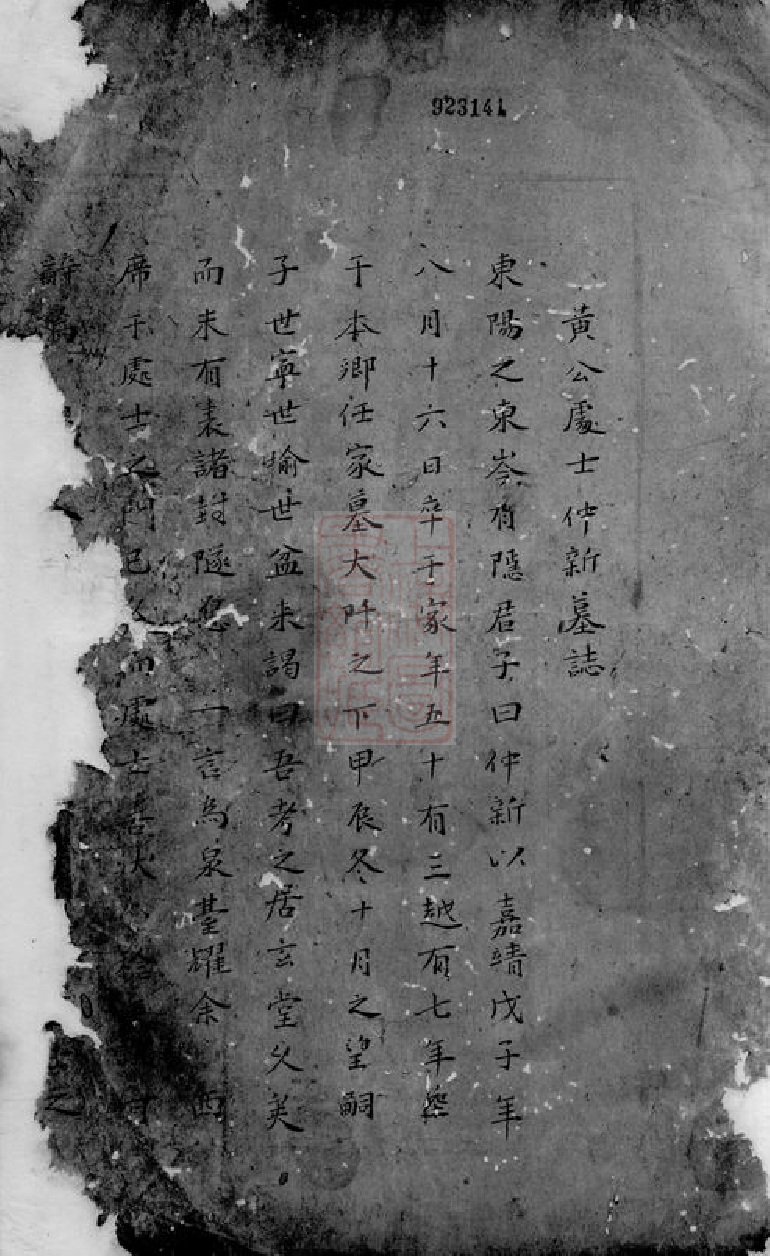 923141
黃公處士仲新墓誌
東陽之東岑有隱君子曰仲新以嘉靖戊子年
八月十六日卒于家年五十有三越有七年塟
于本鄉任家墓大阡之下甲辰冬十月之望嗣
子世寧世揄世盆来謁曰吾考之居玄堂久矣
而未有表諸封隧一言為泉䑓耀余西
席于處士之門已久而處士
之